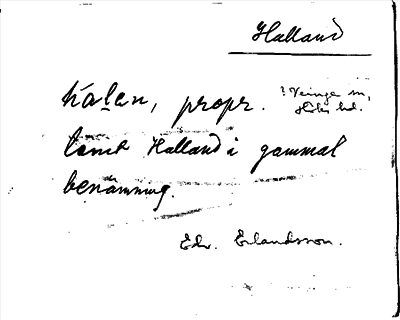 Halland
halen, propr. ! Veinge sn,
Höks hd.
samt Halland i gammal
benämning.
Edv. Erlandsson.